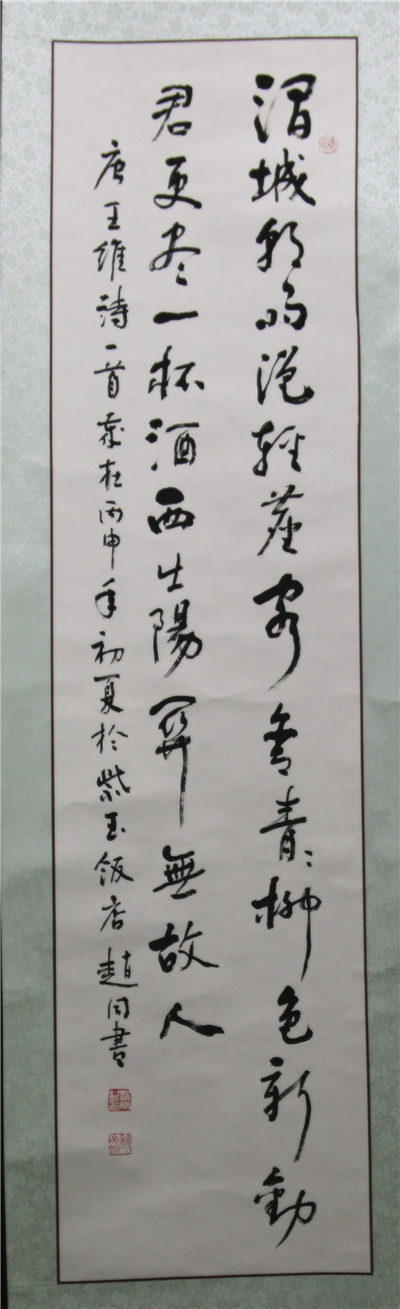 渭城朝雨浥輕塵客舍青青柳色新勸
君更尽一杯酒西出陽關無故人
唐王維詩一首歲在丙申年初夏於紫玉飯店趙同書